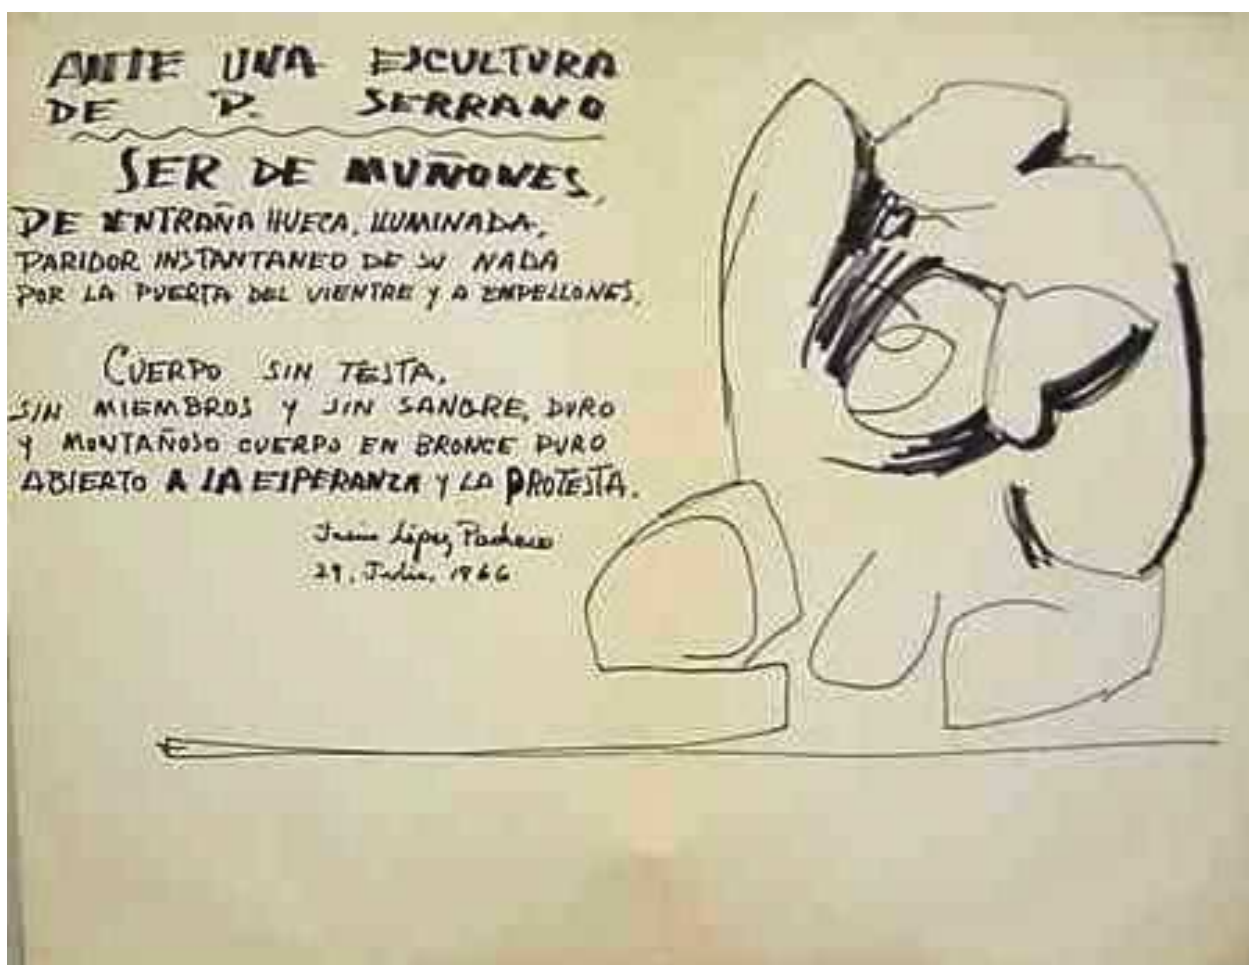 ANTE UNA ESCULTURA
DE P. SERRANO
SER DE MUÑONES,
DE ENTRAÑA HUECA, ILUMINADA,
PARIDOR INSTANTANEO DE SU NADA
POR LA PUERTA DEL VIENTRE Y A EMPELLONES.
CUERPO SIN TESTA,
SIN MIEMBROS Y SIN SANGRE, DURO
Y MONTAÑOSO CUERPO EN BRONCE PURO
ABIERTO A LA ESPERANZA Y LA PROTESTA.
López Pacheco
29, Julio, 1966